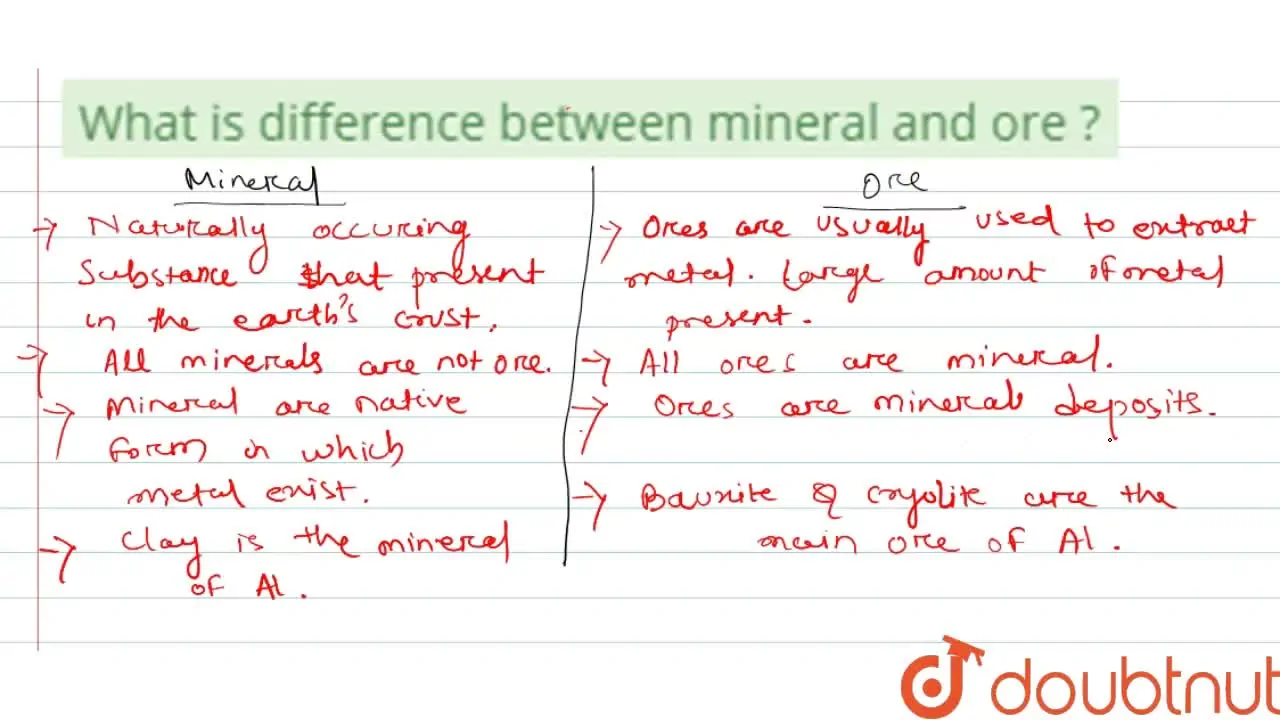 What is difference between mineral and ore ?
Mineral
→ Naturally occuring
Substance that present
in the earth's crust.
→ All minerals are not ore.
→ Mineral are native
form in which
metal exist.
→ Clay is the mineral
of Al.
Ore
→ Ores are usually used to extract
metal. Large amount of metal
present.
→ All ores are mineral.
→ Ores are mineral deposits.
→ Bauxite & cryolite are the
main ore of Al.
doubtnut